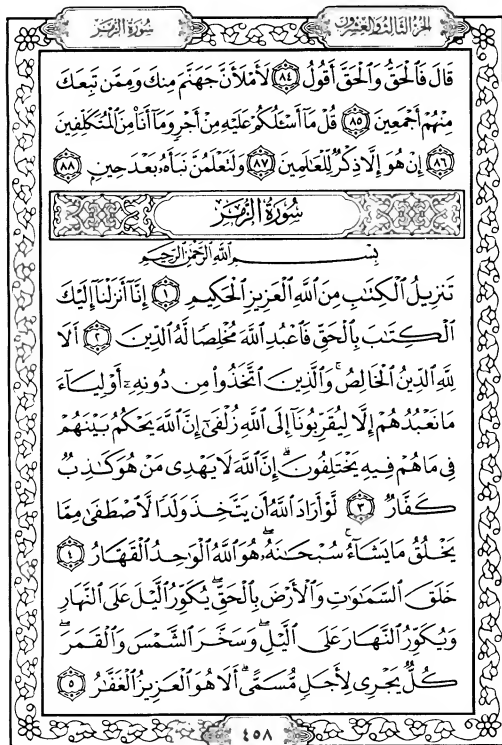 سُورَةُ الزُّمَرِ
الجُزْءُ الثَّالِثُ وَالعِشْرُونَ
قَالَ فَٱلْحَقُّ وَٱلْحَقَّ أَقُولُ ٨٤ لَأَمْلَأَنَّ جَهَنَّمَ مِنكَ وَمِمَّن تَبِعَكَ
مِنْهُمْ أَجْمَعِينَ ٨٥ قُلْ مَآ أَسْـَٔلُكُمْ عَلَيْهِ مِنْ أَجْرٍ وَمَآ أَنَا۠ مِنَ ٱلْمُتَكَلِّفِينَ
٨٦ إِنْ هُوَ إِلَّا ذِكْرٌ لِّلْعَـٰلَمِينَ ٨٧ وَلَتَعْلَمُنَّ نَبَأَهُۥ بَعْدَ حِينٍۭ ٨٨
سُورَةُ الزُّمَرِ
بِسْمِ ٱللَّهِ ٱلرَّحْمَـٰنِ ٱلرَّحِيمِ
تَنزِيلُ ٱلْكِتَـٰبِ مِنَ ٱللَّهِ ٱلْعَزِيزِ ٱلْحَكِيمِ ١ إِنَّآ أَنزَلْنَآ إِلَيْكَ
ٱلْكِتَـٰبَ بِٱلْحَقِّ فَٱعْبُدِ ٱللَّهَ مُخْلِصًا لَّهُ ٱلدِّينَ ٢ أَلَا
لِلَّهِ ٱلدِّينُ ٱلْخَالِصُ ۚ وَٱلَّذِينَ ٱتَّخَذُوا۟ مِن دُونِهِۦٓ أَوْلِيَآءَ
مَا نَعْبُدُهُمْ إِلَّا لِيُقَرِّبُونَآ إِلَى ٱللَّهِ زُلْفَىٰٓ إِنَّ ٱللَّهَ يَحْكُمُ بَيْنَهُمْ
فِى مَا هُمْ فِيهِ يَخْتَلِفُونَ ۗ إِنَّ ٱللَّهَ لَا يَهْدِى مَنْ هُوَ كَـٰذِبٌ
كَفَّارٌ ٣ لَّوْ أَرَادَ ٱللَّهُ أَن يَتَّخِذَ وَلَدًا لَّٱصْطَفَىٰ مِمَّا
يَخْلُقُ مَا يَشَآءُ ۚ سُبْحَـٰنَهُۥ ۖ هُوَ ٱللَّهُ ٱلْوَٰحِدُ ٱلْقَهَّارُ ٤
خَلَقَ ٱلسَّمَـٰوَٰتِ وَٱلْأَرْضَ بِٱلْحَقِّ ۖ يُكَوِّرُ ٱلَّيْلَ عَلَى ٱلنَّهَارِ
وَيُكَوِّرُ ٱلنَّهَارَ عَلَى ٱلَّيْلِ ۖ وَسَخَّرَ ٱلشَّمْسَ وَٱلْقَمَرَ ۖ
كُلٌّ يَجْرِى لِأَجَلٍ مُّسَمًّى ۗ أَلَا هُوَ ٱلْعَزِيزُ ٱلْغَفَّـٰرُ ٥
٤٥٨